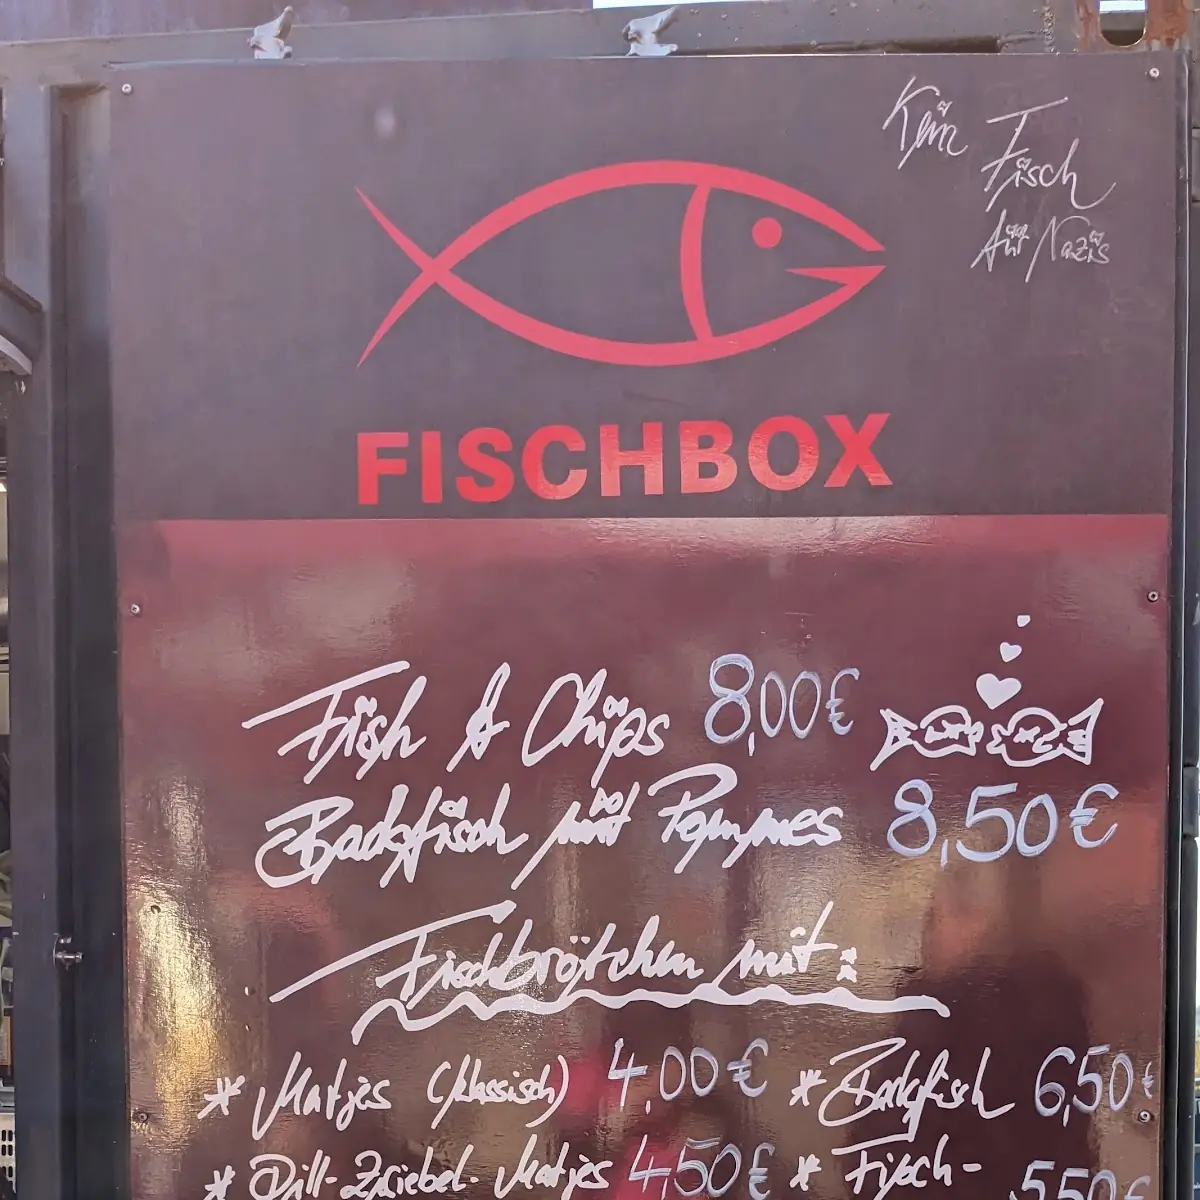 Kein
Fisch
für Nazis
FISCHBOX
Fish & Chips 8,00€
Backfisch mit Pommes 8,50€
Fischbrötchen mit:
* Matjes (klassisch) 4,00€ * Backfisch 6,50€
* Dill-Zwiebel-Matjes 4,50€ * Fisch- 5,50€